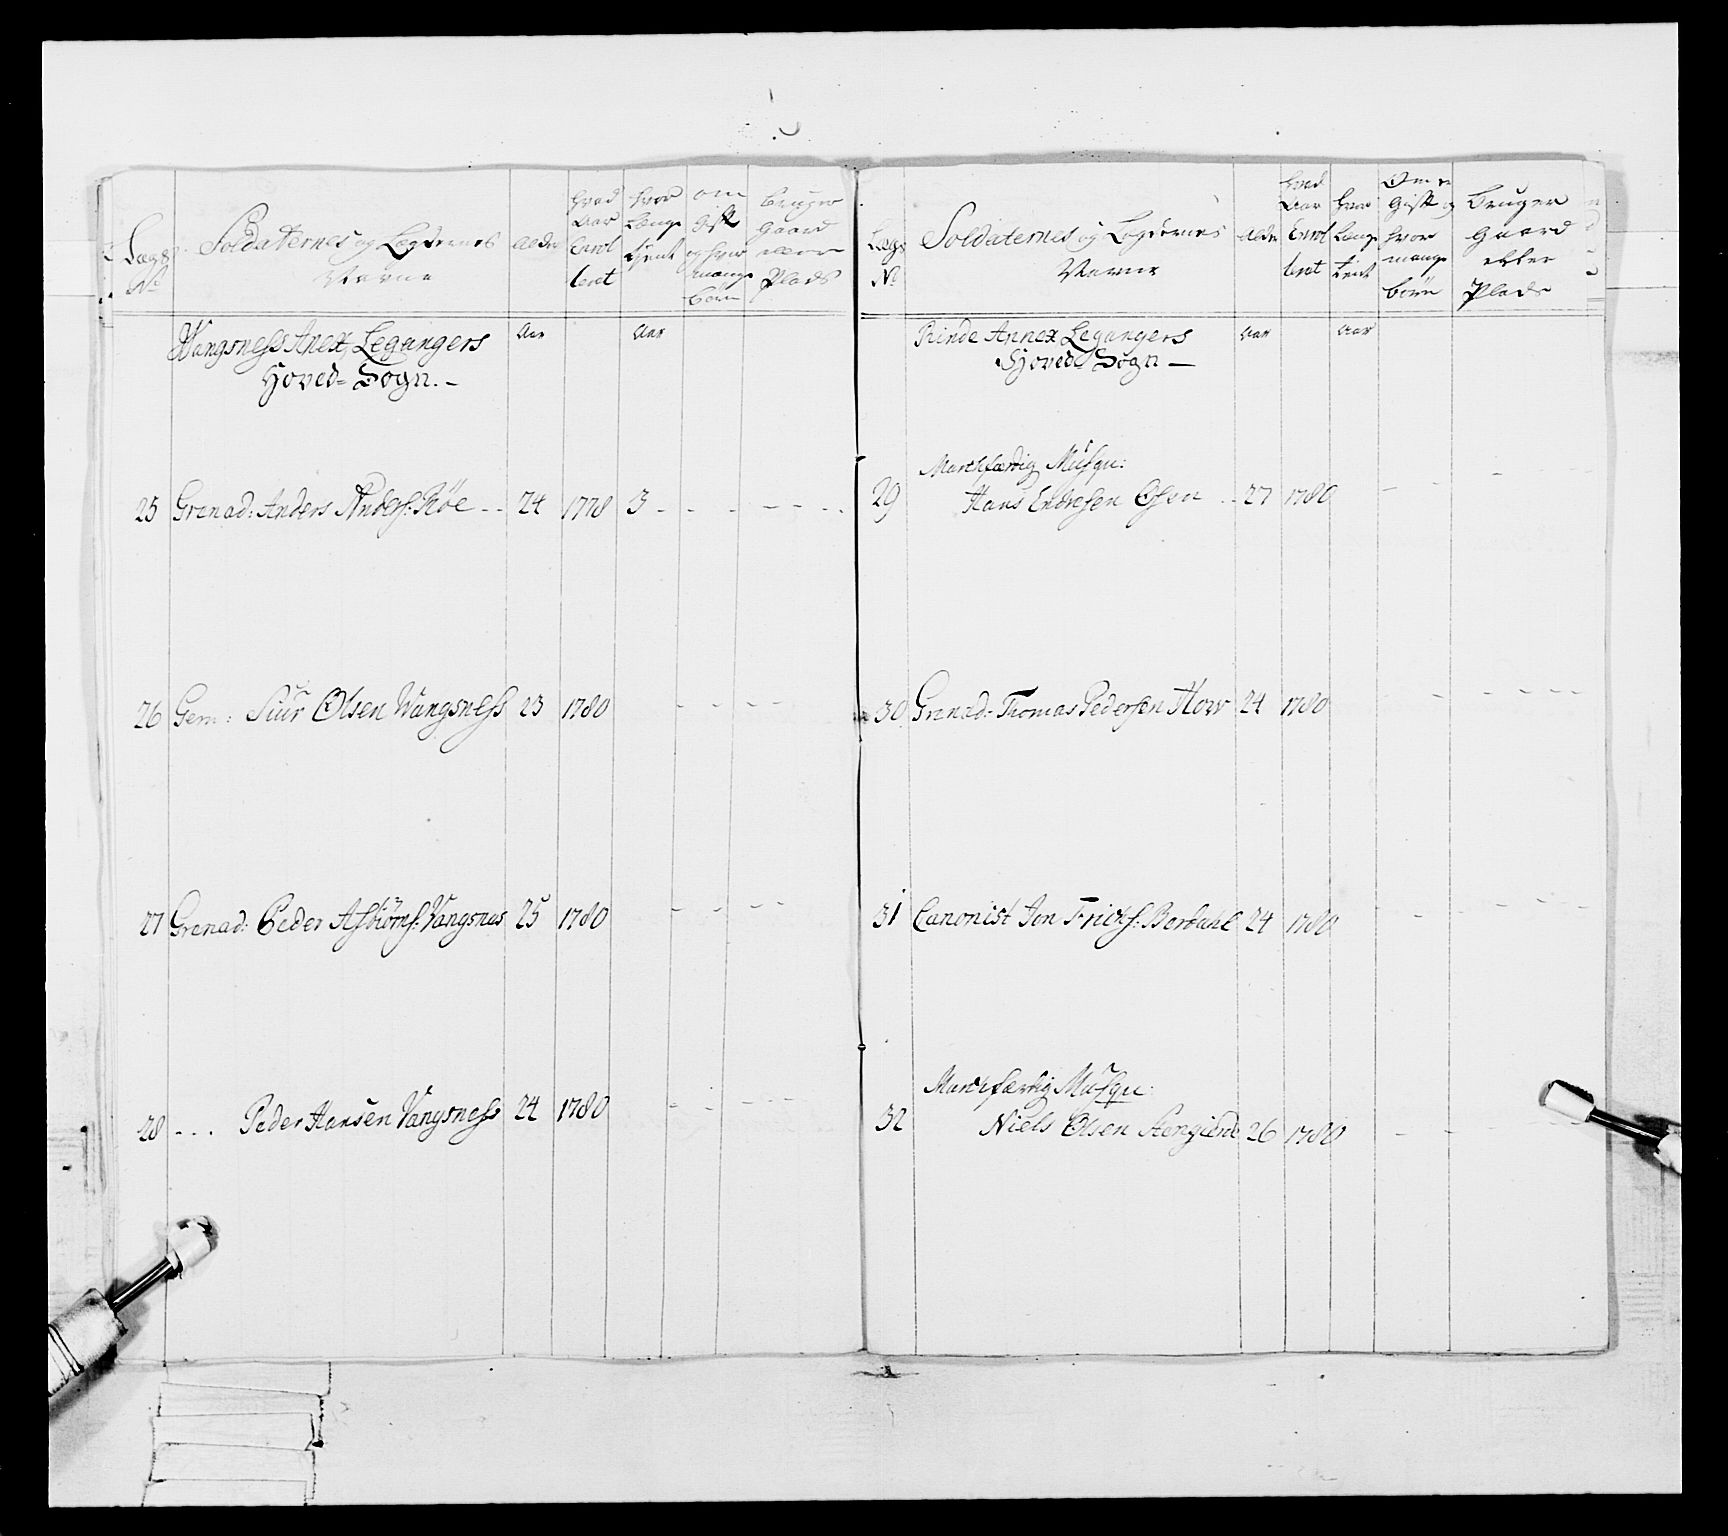 Lægs No
Soldaternes og Lægdernes Navne
Alder
hvad Aar Enrolleret
hvor Længe tient
om Gift og hvor mange børn
bruger Gaard eller Plads
Wangsness Anex, Legangers
Hoved=Sogn. –
Aar
Aar
25 Grenad: Anders Anders: Röe -- 24 1778 3 - - - - - - -
26 Gem: Siur Olsen Wangsness 23 1780 - - - -
27 Grenad: Peder Asbiörns: Vangsnes 25 1780 - - - -
28 - - - Peder Hansen Vangsness 24 1780 - - - - -
Lægs No
Soldaternes og Lægdernes Navne
Alder
hvad Aar
hvor Længe tient
Om er Gift og hvor mange börn
Bruger Gaard eller Plads
Rinde Annex Legangers
Hoved=Sogn –
Aar
Aar
Marchfærdig Musqu:
29 Hans Endresen -- 27 1780 - - - -
30 Grenad: Thomas Pedersen How 24 1780 - - - - -
31 Canonist Jon Frichs: Berdahl 24 1780 - - - - - -
Marchfærdig Musqu:
32 Niels Olsen 26 1780 - - - - -